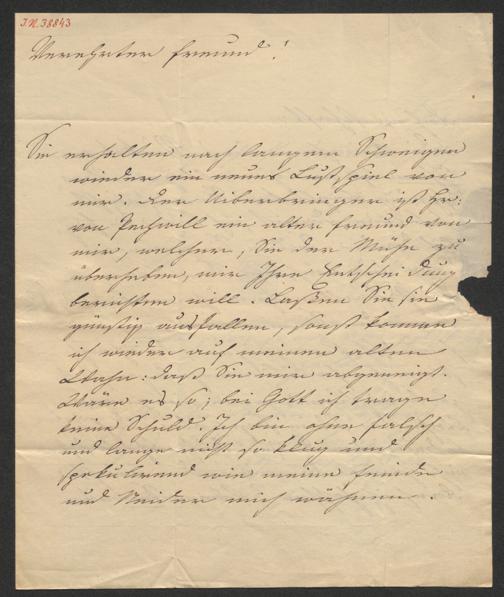 I.N. 38843
Verehrter Freund!
Sie erhalten nach langem Schweigen
wieder ein neues Lustspiel von
mir. Der Uiberbringer ist Hr:
von ein alter Freund von
mir, welcher, Sie der Mühe zu
überheben, mir Ihre Entscheidung
berichten will. Laßen Sie sie
günstig ausfallen, sonst komme
ich wieder auf meinen alten
Wahn: daß Sie mir abgeneigt.
Wäre es so; bei Gott ich trage
keine Schuld. Ich bin ohne Falsch
und lange nicht so klug und
spekulirend wie meine Feinde
und Neider mich wähnen.